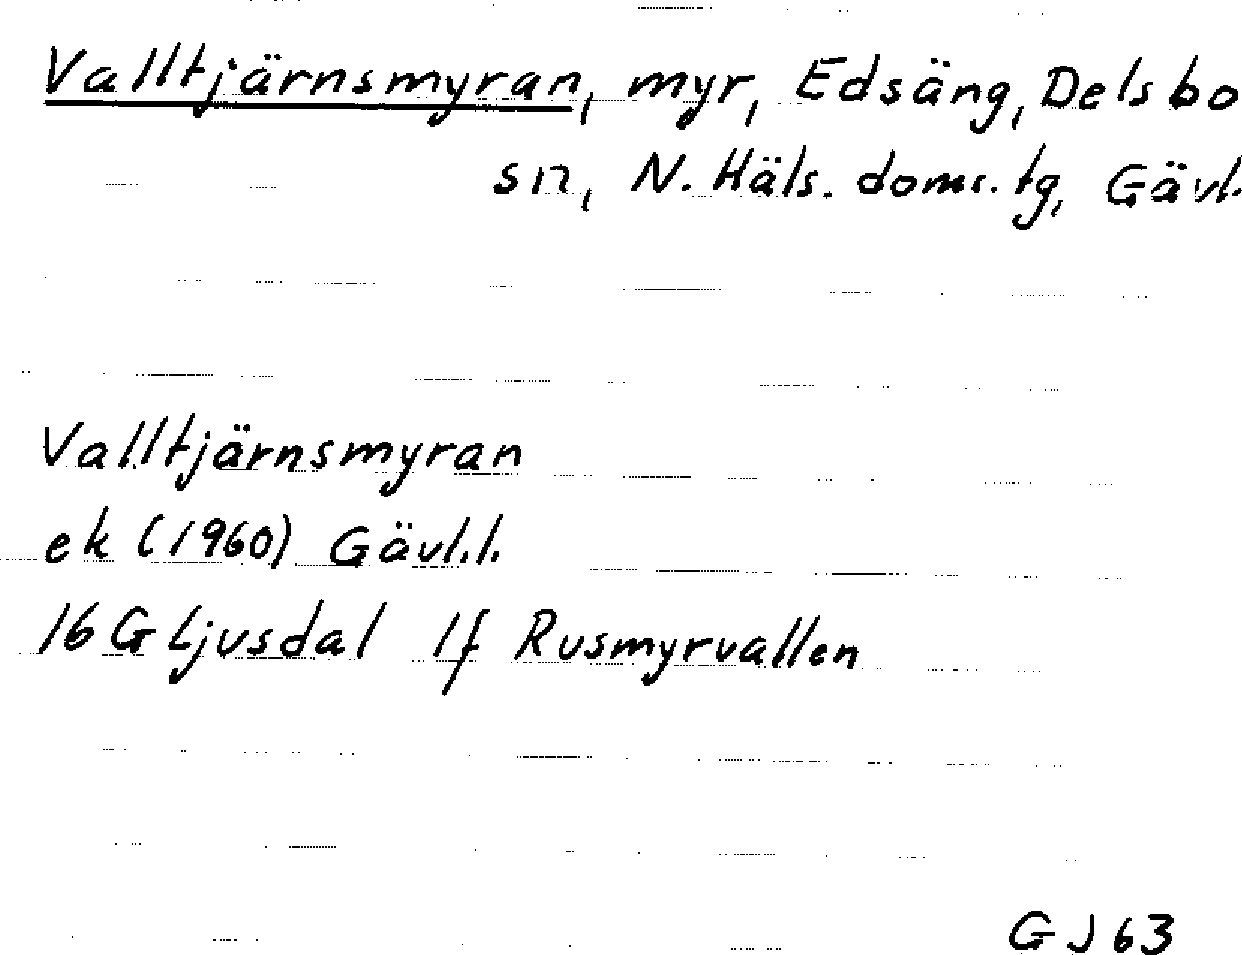 Valltjärnsmyran, myr, Edsäng, Delsbo
sn, N. Häls. doms. tg, Gävl.
Valltjärnsmyran
ek (1960) Gävl.l.
16 G Ljusdal 1f Rusmyrvallen
GJ 63